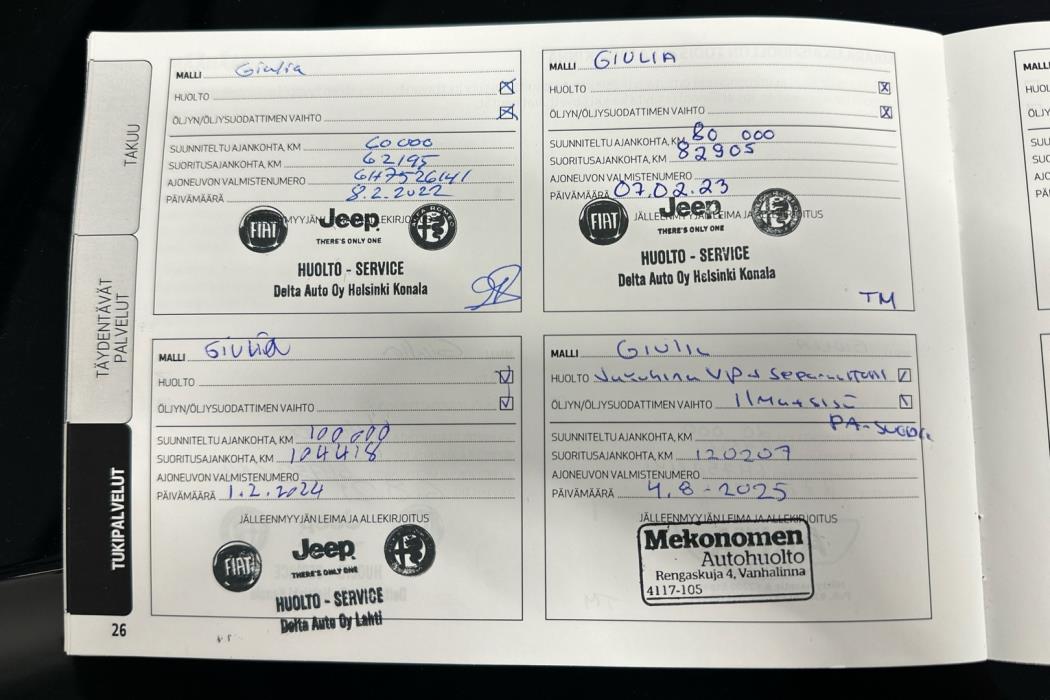 TAKUU
TÄYDENTÄVÄT PALVELUT
TUKIPALVELUT
MALLI Giulia
HUOLTO
ÖLJYN/ÖLJYSUODATTIMEN VAIHTO
SUUNNITELTU AJANKOHTA, KM 60 000
SUORITUSAJANKOHTA, KM 62195
AJONEUVON VALMISTENUMERO GH7526141
PÄIVÄMÄÄRÄ 8.2.2022
FIAT Jeep ALFA ROMEO
THERE'S ONLY ONE
HUOLTO - SERVICE
Delta Auto Oy Helsinki Konala
MALLI GIULIA
HUOLTO
ÖLJYN/ÖLJYSUODATTIMEN VAIHTO
SUUNNITELTU AJANKOHTA, KM 80 000
SUORITUSAJANKOHTA, KM 82905
AJONEUVON VALMISTENUMERO
PÄIVÄMÄÄRÄ 07.02.23
JÄLLEENMYYJÄN LEIMA JA ALLEKIRJOITUS
FIAT Jeep
THERE'S ONLY ONE
HUOLTO - SERVICE
Delta Auto Oy Helsinki Konala
TM
MALLI GIULIA
HUOLTO
ÖLJYN/ÖLJYSUODATTIMEN VAIHTO
SUUNNITELTU AJANKOHTA, KM 100 000
SUORITUSAJANKOHTA, KM 104418
AJONEUVON VALMISTENUMERO
PÄIVÄMÄÄRÄ 1.2.2024
JÄLLEENMYYJÄN LEIMA JA ALLEKIRJOITUS
FIAT Jeep
THERE'S ONLY ONE
HUOLTO - SERVICE
Delta Auto Oy Lahti
MALLI GIULIA
HUOLTO VP+
ÖLJYN/ÖLJYSUODATTIMEN VAIHTO
SUUNNITELTU AJANKOHTA, KM
SUORITUSAJANKOHTA, KM 120207
AJONEUVON VALMISTENUMERO
PÄIVÄMÄÄRÄ 4.8-2025
JÄLLEENMYYJÄN LEIMA JA ALLEKIRJOITUS
Mekonomen
Autohuolto
Rengaskuja 4, Vanhalinna
4117-105
26
MALLI